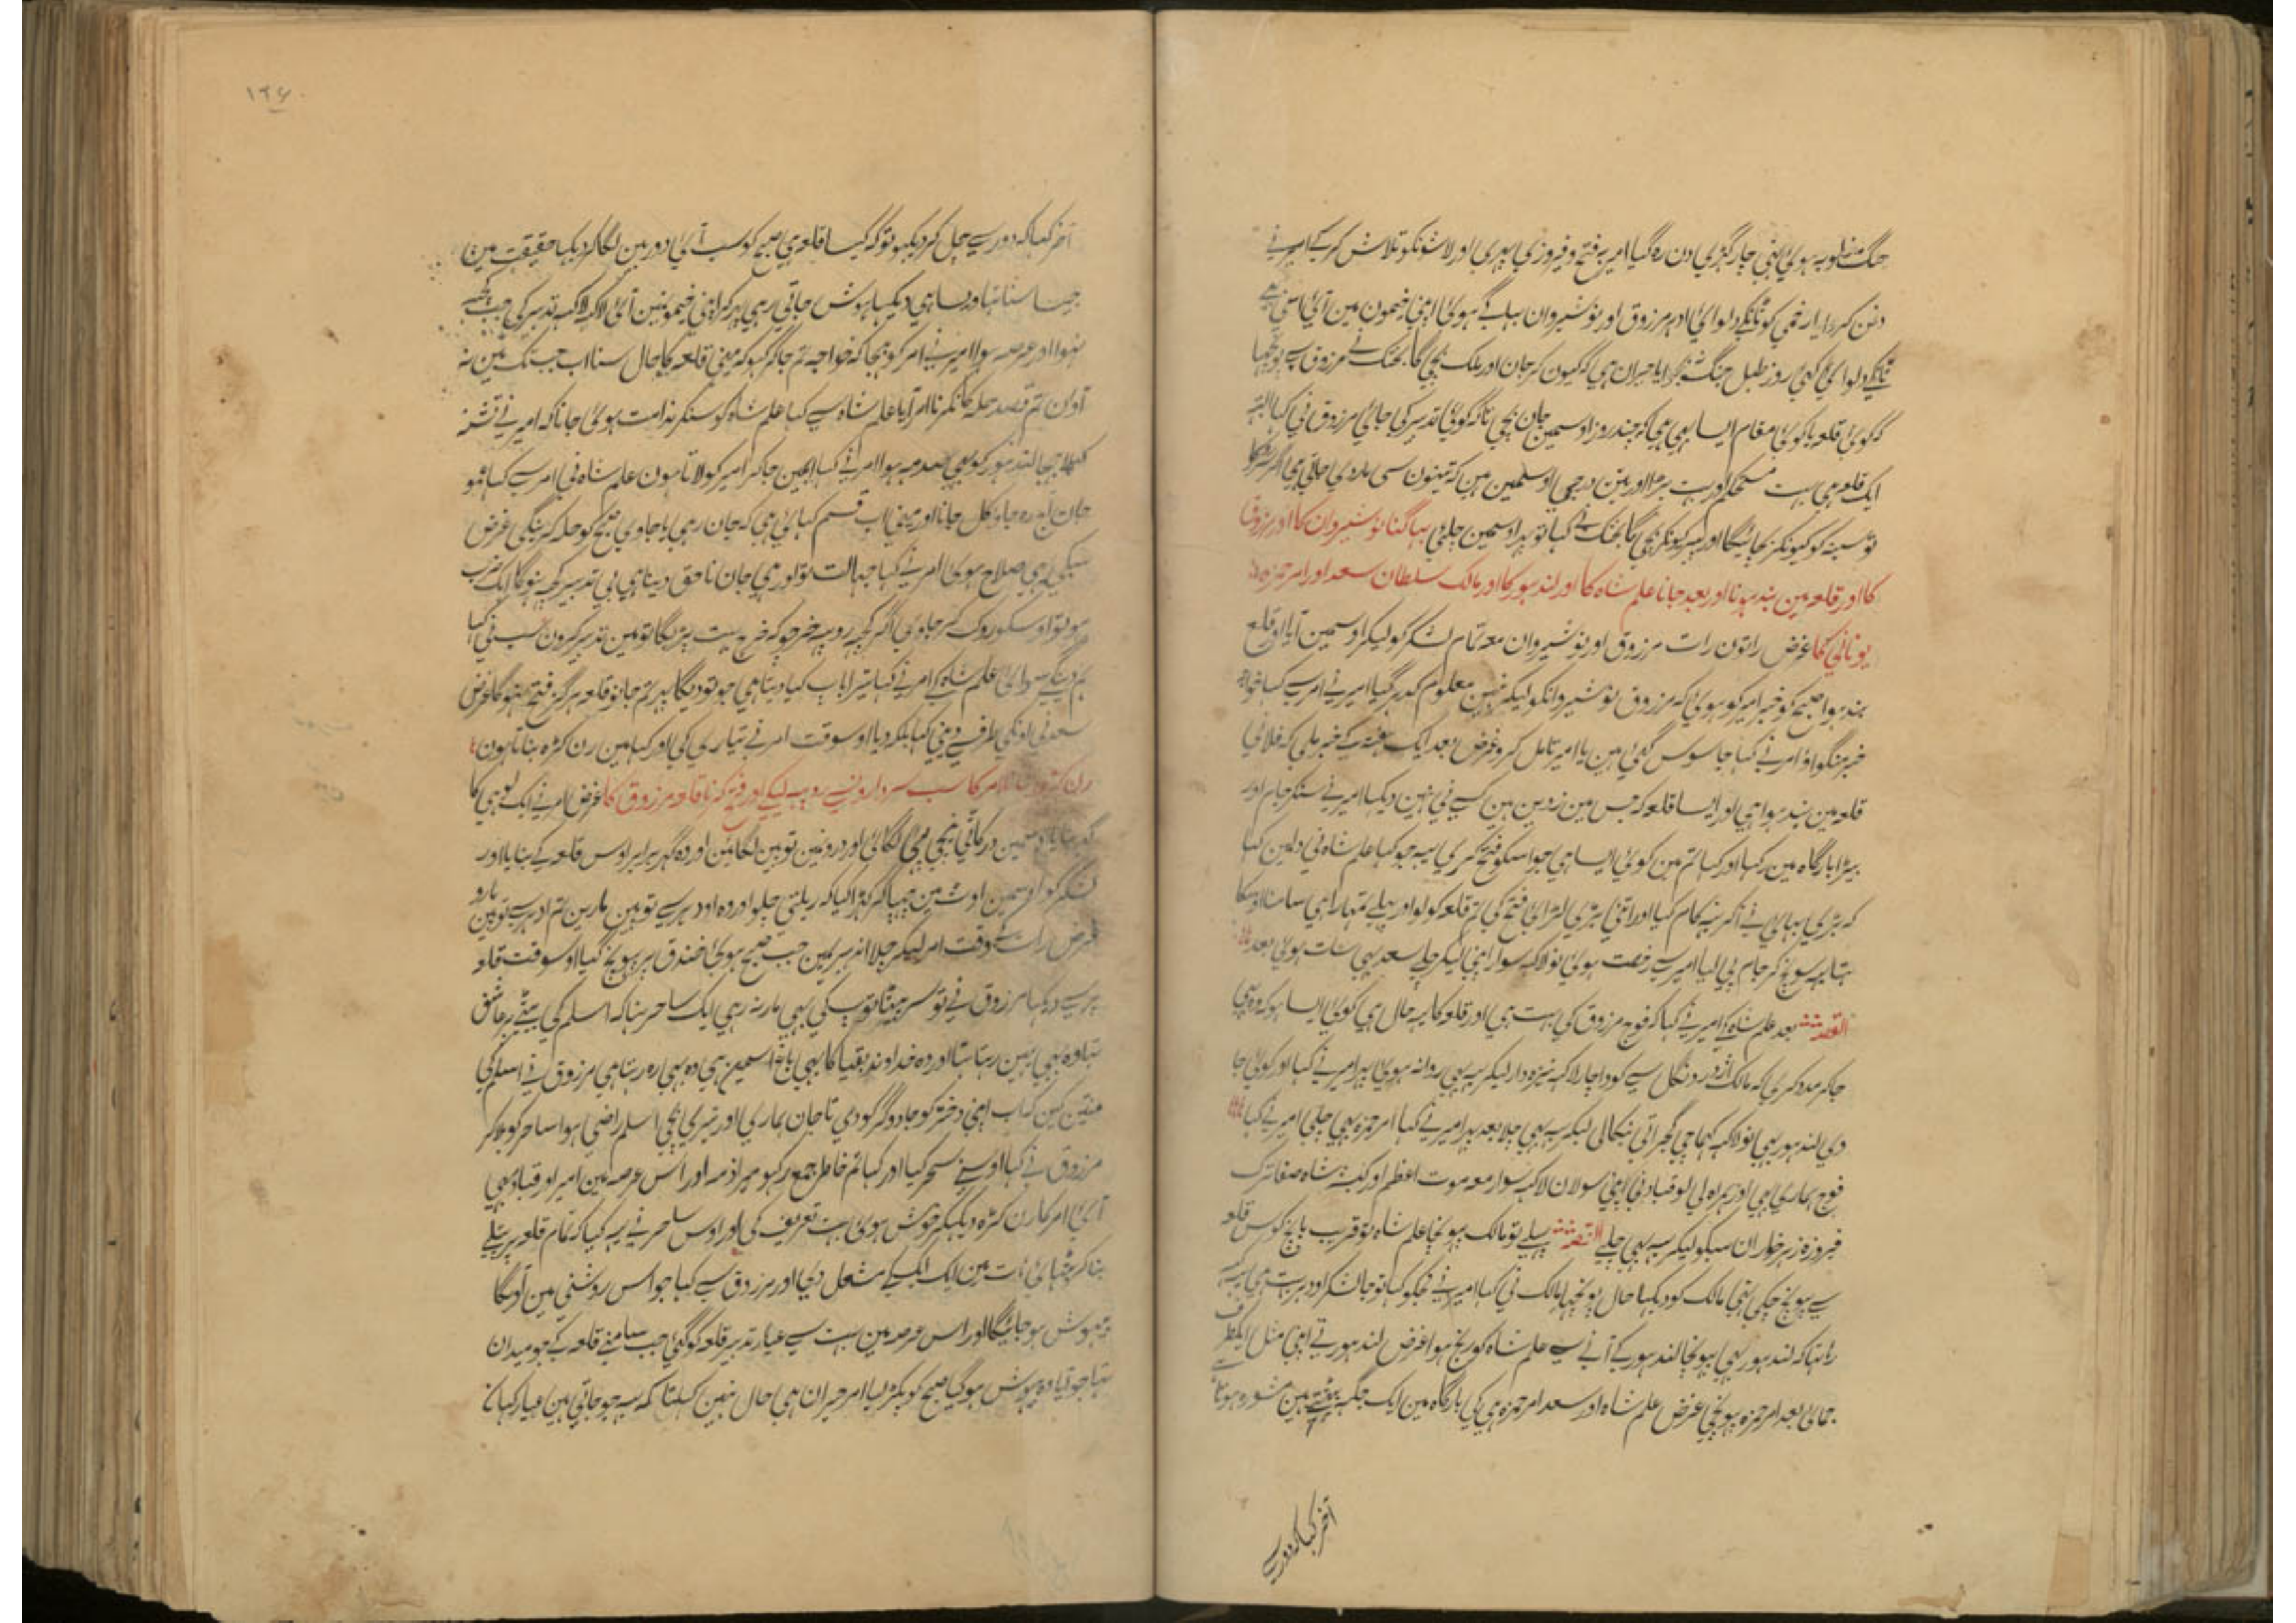 جنگ مغلوبہ ہوئی اتنی چار گھڑی دن رہ گیا امیر بہ فتح و فیروزی پہری اور لاشونکو تلاش کر کے امیر نے
دفن کروایا زخمی کو ٹانکے دلوائی اودہر مرزوق اور نوشیروان بہاگے ہوئی اپنی خیمون مین آئی
ٹانکے دلوائی کئی روز طبل جنگ نہ بجوایا حیران ہی کہ کیون کر جان اور ملک بچی گا بختک نے مرزوق سے پونچہا
کہ کوئی قلعہ یا کوئی مقام ایسا بہی ہی کہ چند روز اوسمین جان بچی تاکہ کوئی تدبیر کی جائی مرزوق نی کہا البتہ
ایک قلعہ ہی بہت مستحکم اور بہت بڑا اور تین درجی اوسمین ہین کہ تینون سی بارود چلتی ہی
تو سینہ کو کیونکر بچائیگا اور سر کیونکر بچی گا بختک نے کہا تو پہر اوسمین چلی بہاگنا نوشیروان کا اور مرزوق
کا اور قلعہ مین بند ہونا اور بعد جانا علم شاہ کا اور لندہور کا اور مالک سلطان سعد اور امر حمزہ
یونانی کا غرض راتون رات مرزوق اور نوشیروان معہ تمام لشکر کو لیکر اوسمین آیا اور قلع
بند ہوا صبح کو خبر امیر کو ہوئی کہ مرزوق نوشیروانکو لیکر نہین معلوم کدہر گیا امیر نے امر سے کہا خواجہ
خبر منگواؤ امر نے کہا جاسوس گئی ہین یا امیر تامل کرو غرض بعد ایک ہفتہ کے خبر ملی کہ فلانی
قلعہ مین بند ہوا ہی اور ایسا قلعہ کہ جس مین زمین مین کسے نی نہین دیکہا امیر نے سنکر جام اور
بیڑا بارگاہ مین رکہا اور کہا تم مین کوئی ایسا ہی جو اسکو فتح کری یہ جو کہا علم شاہ نی دلمین کہا
کہ بڑی بہائی نے اگر یہ کام کیا اور اتنی بڑی لڑائی فتح کی تم قلعہ کو لو اور پہلے تمہارا ہی سامنا اوسکا
تہا یہ سونچ کر جام پی لیا امیر سے رخصت ہوئی نو لاکہہ سوار اپنی لیکر چلے سعد بہی سات ہوئی بعد
القصہ بعد علم شاہ کے امیر نے کہا کہ فوج مرزوق کی بہت ہی اور قلعہ کا یہ حال ہی کوئی ایسا ہو کہ وہ بہی
جا کر مدد کری کہ مالک اژدر دنگل سے کودا چار لاکہہ نیزہ دار لیکر یہ بہی روانہ ہوئی پہر امیر نے کہا اور کوئی جا
دی لندہور بہی نو لاکہہ گجراتی بنگالی لیکر یہ بہی چلا بعد پہر امیر نے کہا امر حمزہ بہی چلی امیر نے کہا
فوج ہماری ہی اور ہمراہ لی لو قباد نی اپنی سولان لاکہہ سوار معہ موت اعظم اور شاہ صفا ترک
فیروزہ زہر خواران سبکو لیکر یہ بہی چلے القصہ پہلے تو مالک پہونچا علم شاہ تو قریب پانچ کوس قلعہ
سے پہونچ چکی تہی مالک کو دیکہا حال پونچہا مالک نی کہا امیر نے مجکو کہا تو جا لشکر اودہر بہت ہی
رہا تہا کہ لندہور بہی پہونچا لندہور کے آنے سے علم شاہ کو رنج ہوا غرض لندہور نے اپنی مثل ایکطرف
جمائی بعد امر حمزہ پہونچی غرض علم شاہ اور سعد امر حمزہ ہی کی بارگاہ مین ایک جگہ بیٹہے ہین مشورہ ہوتا ہے
آخر کہا کہ دور سے
۱۲۶
آخر کہا کہ دور سے چل کر دیکہو تو کہ کیسا قلعہ ہی صبح کو سب آئی دوربین لگا کر دیکہا حقیقت مین
جیسا سنا تہا ویسا ہی دیکہا ہوش جاتی رہی پہر کر اپنی خیمونمین آئی لاکہہ لاکہہ تدبیر کی جب کچہہ
نہوا اور عرصہ ہوا امیر نے امر کو بہیجا کہ خواجہ تم جا کر کہو کہ مینی قلعہ کا حال سنا اب جب تک مین نہ
آون تم قصد حملہ کا نکرنا امر آیا علم شاہ سے کہا علم شاہ کو سنکر ندامت ہوئی جانا کہ امیر نے
کہلا بہیجا لندہور کو بہی صدمہ ہوا امر نے کہا مین جا کر امیر کو لاتا ہون علم شاہ نی امر سے کہا عمو
جان تم رہ جاؤ کل جانا اور مینی اب قسم کہائی ہی کہ جان رہی یا جاوی صبح کو حملہ کرینگی غرض
سبکی یہی صلاح ہوئی امر نے کہا جہالت تو اور ہی جان ناحق دینا ہی بی تدبیر کچہہ نہوگا ایک ضرب
ہو تو اوسکو روک کر جاوی اگر کچہہ روپیہ خرچو کہ خرچ بہت پڑیگا تو مین تدبیر کرون سب نی کہا
ہم دینگے سوائی علم شاہ کے امر نے کہا تیرا باپ کیا دیتا ہی جو تو دیگا پر تم جانو قلعہ ہرگز فتح نہوگا غرض
سعد نی اونکی طرف سے دینی کہا بلکہ دیا اوسوقت امر نے تیاری کی اور کہا مین رن کہڑہ بناتا ہون
امر کا سب سردارونسے روپیہ لیکے اور فتح کرنا قلعہ مرزوق کا غرض امر نے ایک لوہی کا
درکاٹی نیچی پہیی لگائی اور درونمین توپین لگائین اور وہ گہر برابر اوس قلعہ کے بنایا اور
لشکر کو اوسمین اوٹ مین چہپا کر کہڑا کیا کہ ریلتی چلو اور وہ اودہر سے توپین مارین تم ادہر سے توپین مارو
غرض رات کے وقت امر لیکر چلا اندہیریمین جب صبح ہوئی خندق پر پہونچ گیا اوسوقت قلعہ
پر سے دیکہا مرزوق نے تو سر پیٹا توپ کی بہی مار نہ رہی ایک ساحر تہا کہ اسلم کی بیٹی پر عاشق
تہا وہ بہی یہین رہتا تہا اور وہ خداوند بقیا کا بہی باغ اسمین ہی وہ بہی رہتا ہی مرزوق نے اسلم کی
منتین کین کہ اب اپنی دختر کو جادوگر کو دی تا جان ہماری اور تیری بچی اسلم راضی ہوا ساحر کو بلا کر
مرزوق نے کہا اوسنے سحر کیا اور کہا تم خاطر جمع رکہو میرا ذمہ اور اس عرصہ مین امیر اور قباد بہی
آئی امر کا رن کہڑہ دیکہکر خوش ہوئی بہت تعریف کی اور اوس ساحر نے یہ کیا کہ تمام قلعہ پر پتلے
بنا کر بٹہائی ہات مین ایک ایک کے مشعل دی اور مرزوق سے کہا جو اس روشنی مین آویگا
بیہوش ہو جائیگا اور اس عرصہ مین بہت سے عیار تدبیر قلعہ کو گئی جب سامنے قلعہ کے جو میدان
تہا جو گیا وہ بیہوش ہو گیا صبح کو پکڑ لیا امر حیران ہی حال نہین کہلتا کہ یہ جو جاتی ہین عیار کہان